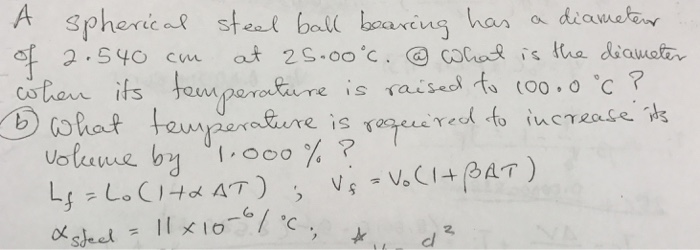 A spherical steel ball bearing has a diameter
of 2.540 cm at 25.00°C. ⓐ What is the diameter
when its temperature is raised to 100.0 °C ?
ⓑ What temperature is required to increase its
volume by 1.000 % ?
Lf = L₀(1+αΔT) ; Vf = V₀(1+βΔT)
αsteel = 11 × 10⁻⁶/°C; * d²